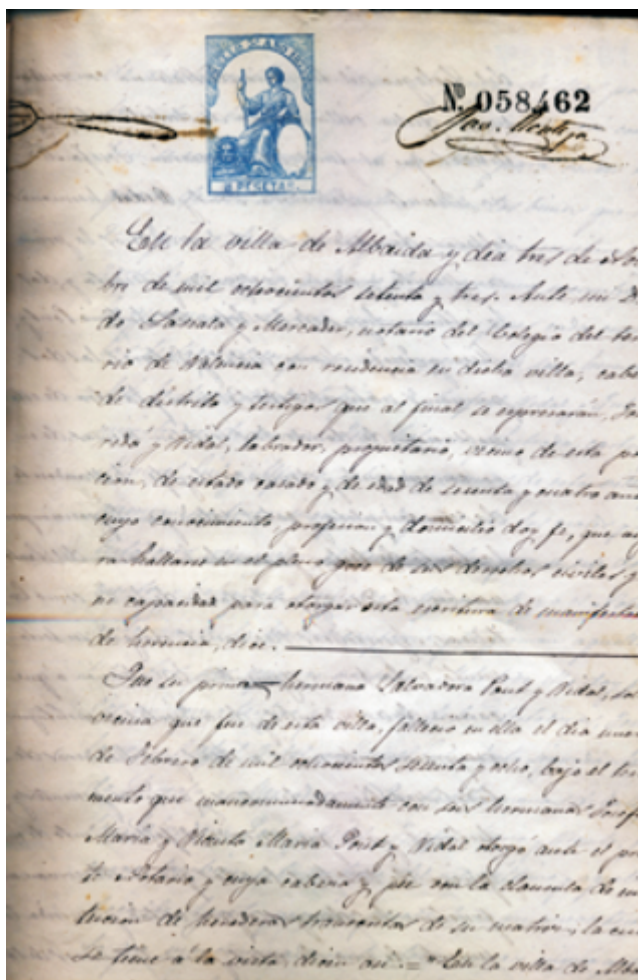 11 PESETAS.
Nº 058,462
En la villa de Albaida y dia tres de
bre de mil ochocientos setenta y tres. Ante mi
do y Mercader, notario del Colegio del
rio de Valencia con residencia en dicha villa,
de distrito y testigos que al final se espresarán,
y Vidal, labrador, propietario, vecino de esta
cion, de estado casado y de edad de sesenta y cuatro
cuyo conocimiento, profesion y domicilio doy fe, que
hallarse en el pleno goce de sus derechos civiles y
capacidad para otorgar esta escritura de
de herencia, dice.
Que su prima hermana Salvadora y Vidal,
vecina que fue de esta villa, fallecio en ella el dia
de Febrero de mil ochocientos sesenta y ocho, bajo el
mento que mancomunadamente con sus hermanas
Maria y Vicenta Maria y Vidal otorgó ante el
notario y cuya cabeza y pie con la clausula de
de herederos de su matriz, la
se tiene á la vista, dicen asi.= "En la villa de